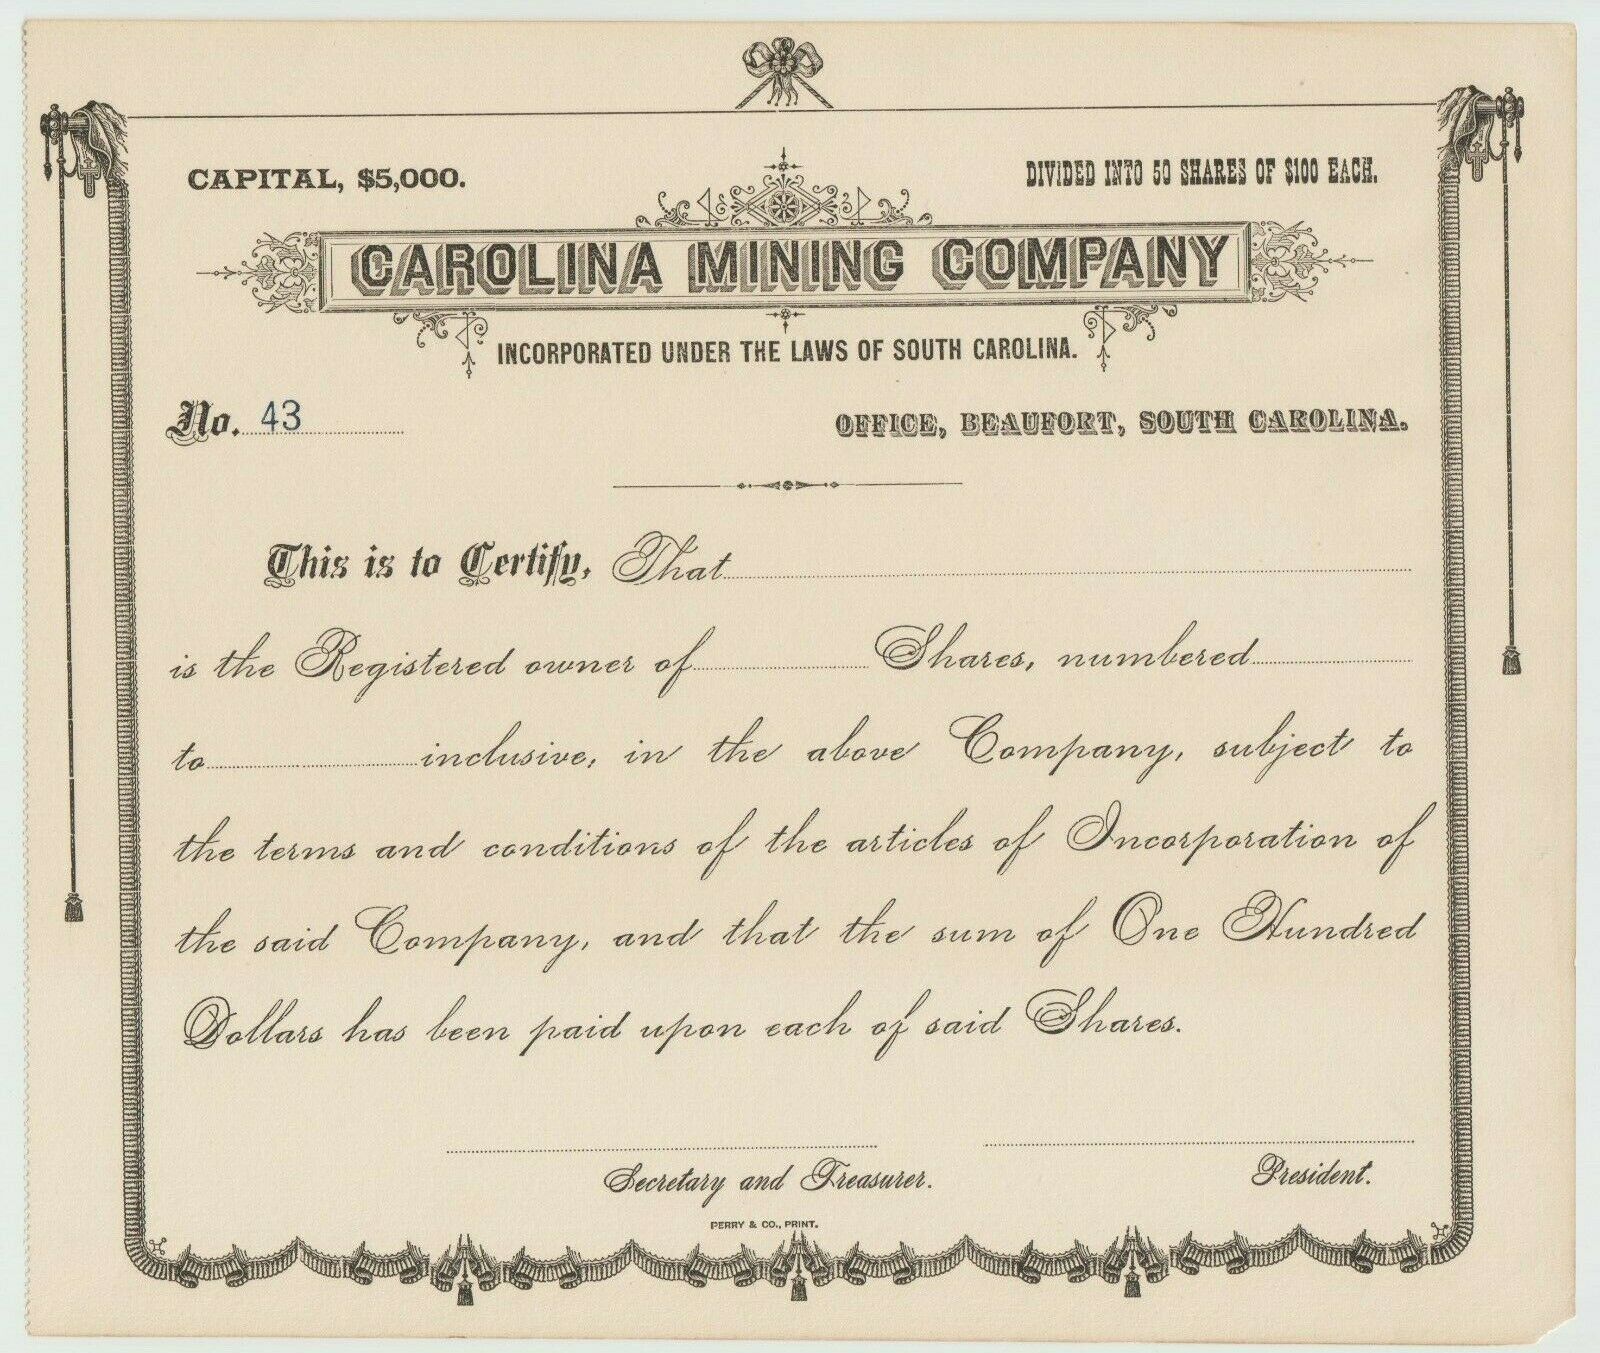 CAPITAL, $5,000.
DIVIDED INTO 50 SHARES OF $100 EACH.
CAROLINA MINING COMPANY
INCORPORATED UNDER THE LAWS OF SOUTH CAROLINA.
No. 43
OFFICE, BEAUFORT, SOUTH CAROLINA.
This is to Certify, That
is the Registered owner of Shares, numbered
to inclusive, in the above Company, subject to
the terms and conditions of the articles of Incorporation of
the said Company, and that the sum of One Hundred
Dollars has been paid upon each of said Shares.
Secretary and Treasurer.
President.
PERRY & CO., PRINT.